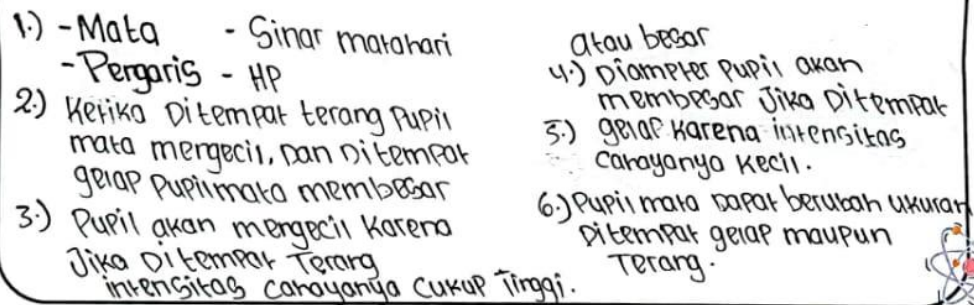 1.) - Mata - Sinar matahari
- Pengaris - HP
2.) Ketika Ditempat terang Pupil
mata mengecil, Dan Ditempat
gelap Pupil mata membesar
3.) Pupil akan mengecil Karena
Jika Ditempat Terang
intensitas cahayanya cukup Tinggi.
atau besar
4.) Diameter Pupil akan
membesar Jika Ditempat
5.) gelap karena intensitas
cahayanya kecil.
6.) Pupil mata Dapat berubah ukuran
Ditempat gelap maupun
Terang.